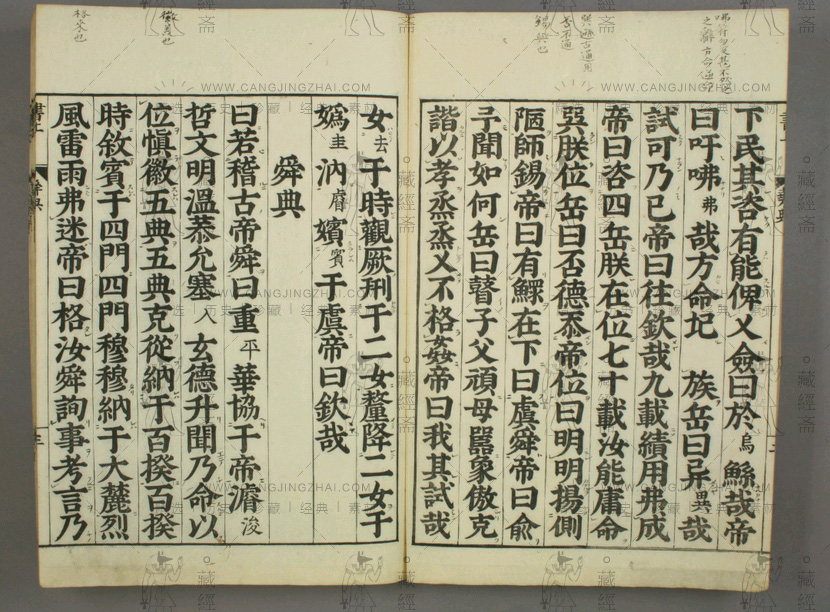 下民其咨有能俾乂僉曰於烏鯀哉帝
曰吁咈弗哉方命圮族岳曰异異哉
試可乃已帝曰往欽哉九載績用弗成
帝曰咨四岳朕在位七十載汝能庸命
巽朕位岳曰否德忝帝位曰明明揚側
陋師錫帝曰有鰥在下曰虞舜帝曰俞
予聞如何岳曰瞽子父頑母嚚象傲克
諧以孝烝烝乂不格姦帝曰我其試哉
女去于時觀厥刑于二女釐降二女于
嬀圭汭嬪賓于虞帝曰欽哉
舜典
曰若稽古帝舜曰重平華協于帝濬浚
哲文明溫恭允塞入玄德升聞乃命以
位愼徽五典五典克從納于百揆百揆
時敘賓于四門四門穆穆納于大麓烈
風雷雨弗迷帝曰格汝舜詢事考言乃
WWW.CANGJINGZHAI.COM
藏經斎